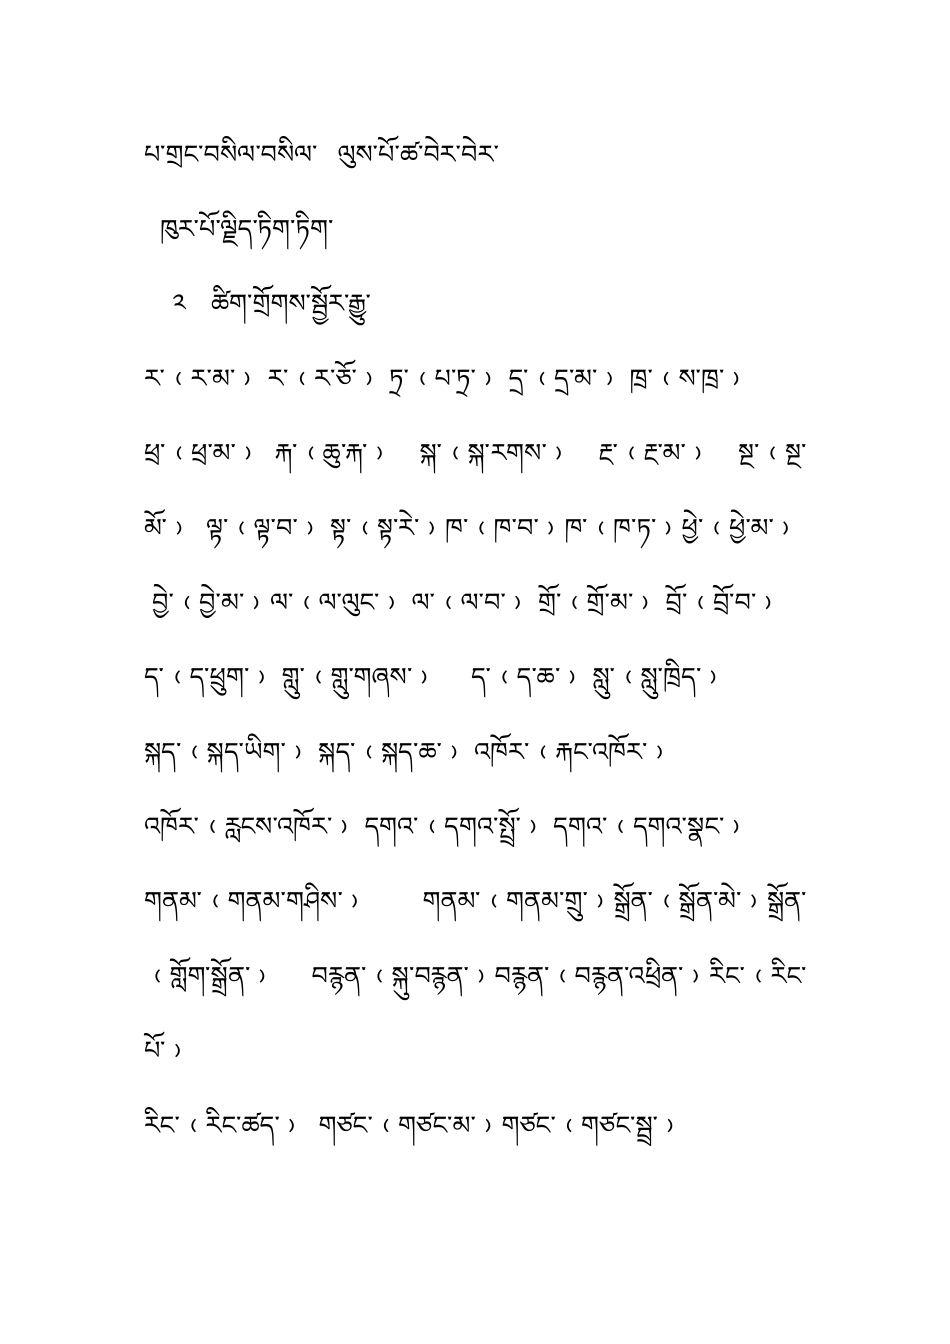 པ་གྲང་བསིལ་བསིལ་  ལུས་པོ་ཚ་བེར་བེར་
ཁུར་པོ་ལྗིད་ཏིག་ཏིག་
༢  ཚིག་གྲོགས་སྦྱོར་རྒྱུ་
ར་（ར་མ་） ར་（ར་ཅོ་） ཏྲ་（པ་ཏྲ་） དྲ་（དྲ་མ་） ཁྲ་（ས་ཁྲ་）
ཕྲ་（ཕྲ་མ་） རྐ་（ཆུ་རྐ་）  སྐ་（སྐ་རགས་）  རྫ་（རྫ་མ་）  སྔ་（སྔ་
མོ་） ལྟ་（ལྟ་བ་） སྟ་（སྟ་རེ་）ཁ་（ཁ་བ་）ཁ་（ཁ་ཏ་）ཕྱེ་（ཕྱེ་མ་）
བྱེ་（བྱེ་མ་）ལ་（ལ་ལུང་） ལ་（ལ་བ་） གྲོ་（གྲོ་མ་） བྲོ་（བྲོ་བ་）
ད་（ད་ཕྲུག་） གླུ་（གླུ་གཞས་）  ད་（ད་ཆ་） སླུ་（སླུ་ཁྲིད་）
སྐད་（སྐད་ཡིག་） སྐད་（སྐད་ཆ་） འཁོར་（རྐང་འཁོར་）
འཁོར་（རླངས་འཁོར་） དགའ་（དགའ་སྤྲོ་） དགའ་（དགའ་སྣང་）
གནམ་（གནམ་གཤིས་）   གནམ་（གནམ་གྲུ་）སྒྲོན་（སྒྲོན་མེ་）སྒྲོན་
（གློག་སྒྲོན་）  བརྙན་（སྐུ་བརྙན་）བརྙན་（བརྙན་འཕྲིན་）རིང་（རིང་
པོ་）
རིང་（རིང་ཚད་） གཙང་（གཙང་མ་）གཙང་（གཙང་སྦྲ་）